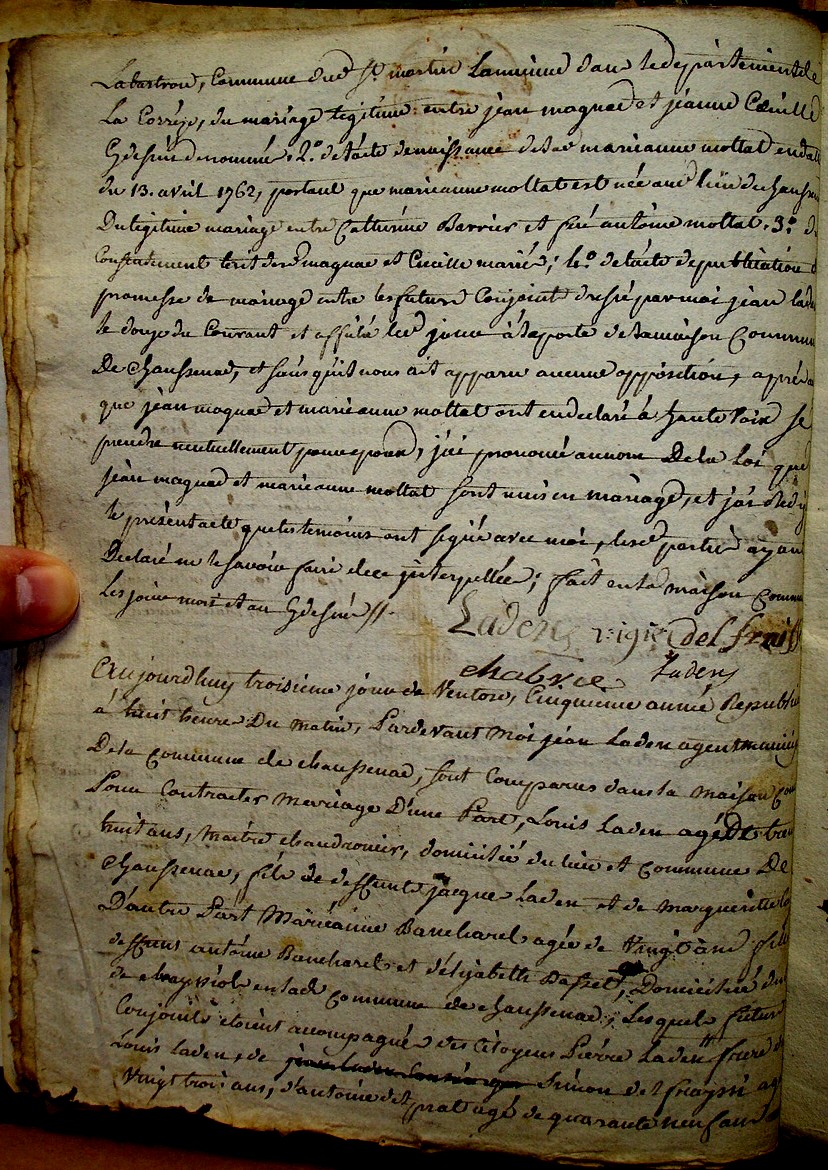 Labastrou, Commune dud. st martin Lanmeine dans le département de
La Corréze, du mariage legitime entre jean magnac et jeanne Cécille
Cydessus denommé. 2.o de l'acte de naissance de lad. marieanne mottat en datte
du 13. avril 1762, portant que marieanne mottat est née aud. lieu de chaussenac
Du legitime mariage entre Catherine Barrier et feu antoine mottat. 3.o du
Consentement desd. magnac et Cecille mariés; 4.o de l'acte de publication de
promesse de mariage entre les futurs Conjoint dressé par moi jean laden
le douze du Courant et affiché led. jour à la porte de la maison Commune
De chaussenac, et sans qu'il nous ait apparu aucune opposition, après
que jean magnac et marieanne mottat ont eu declaré à haute voix se
prendre mutuellement pour epoux, j'ai prononcé au nom De la Loi que
jean magnac et marieanne mottat sont unis en mariage, et j'ai rédigé
le présent acte que les temoins ont signé avec moi, lesd. parties ayant
Declaré ne le savoir faire de ce interpellée; fait en la maison Commune
Les jour mois et an Cydessus //.
Laden vigier delfraissi
chabrie Laden
Aujourd'huy troisieme jour de Ventose, Cinquieme année Republicaine
à huit heures Du matin, Pardevant Moi jean Laden agent municipal
De la Commune de chaussenac, sont Comparus dans la maison Commune
Pour Contracter mariage D'une Part, Louis Laden agé De trente
huit ans, maitre chaudronier, domicilié du lieu et Commune De
chaussenac, fils de deffunt jacque Laden et de marguerite
D'autre Part Marieanne Bancharel agée de Vingt ans fille
deffunt antoine Bancharel et d'elizabeth Basset, Domiciliée du
de chappiol en lad. Commune de chaussenac, Lesquels futurs
Conjoints etoient accompagnés des Citoyens Pierre Laden frere de
Louis Laden, de Simon delfrayssi agé
Vingt trois ans, d'antoine delprat agé de quarante neuf ans